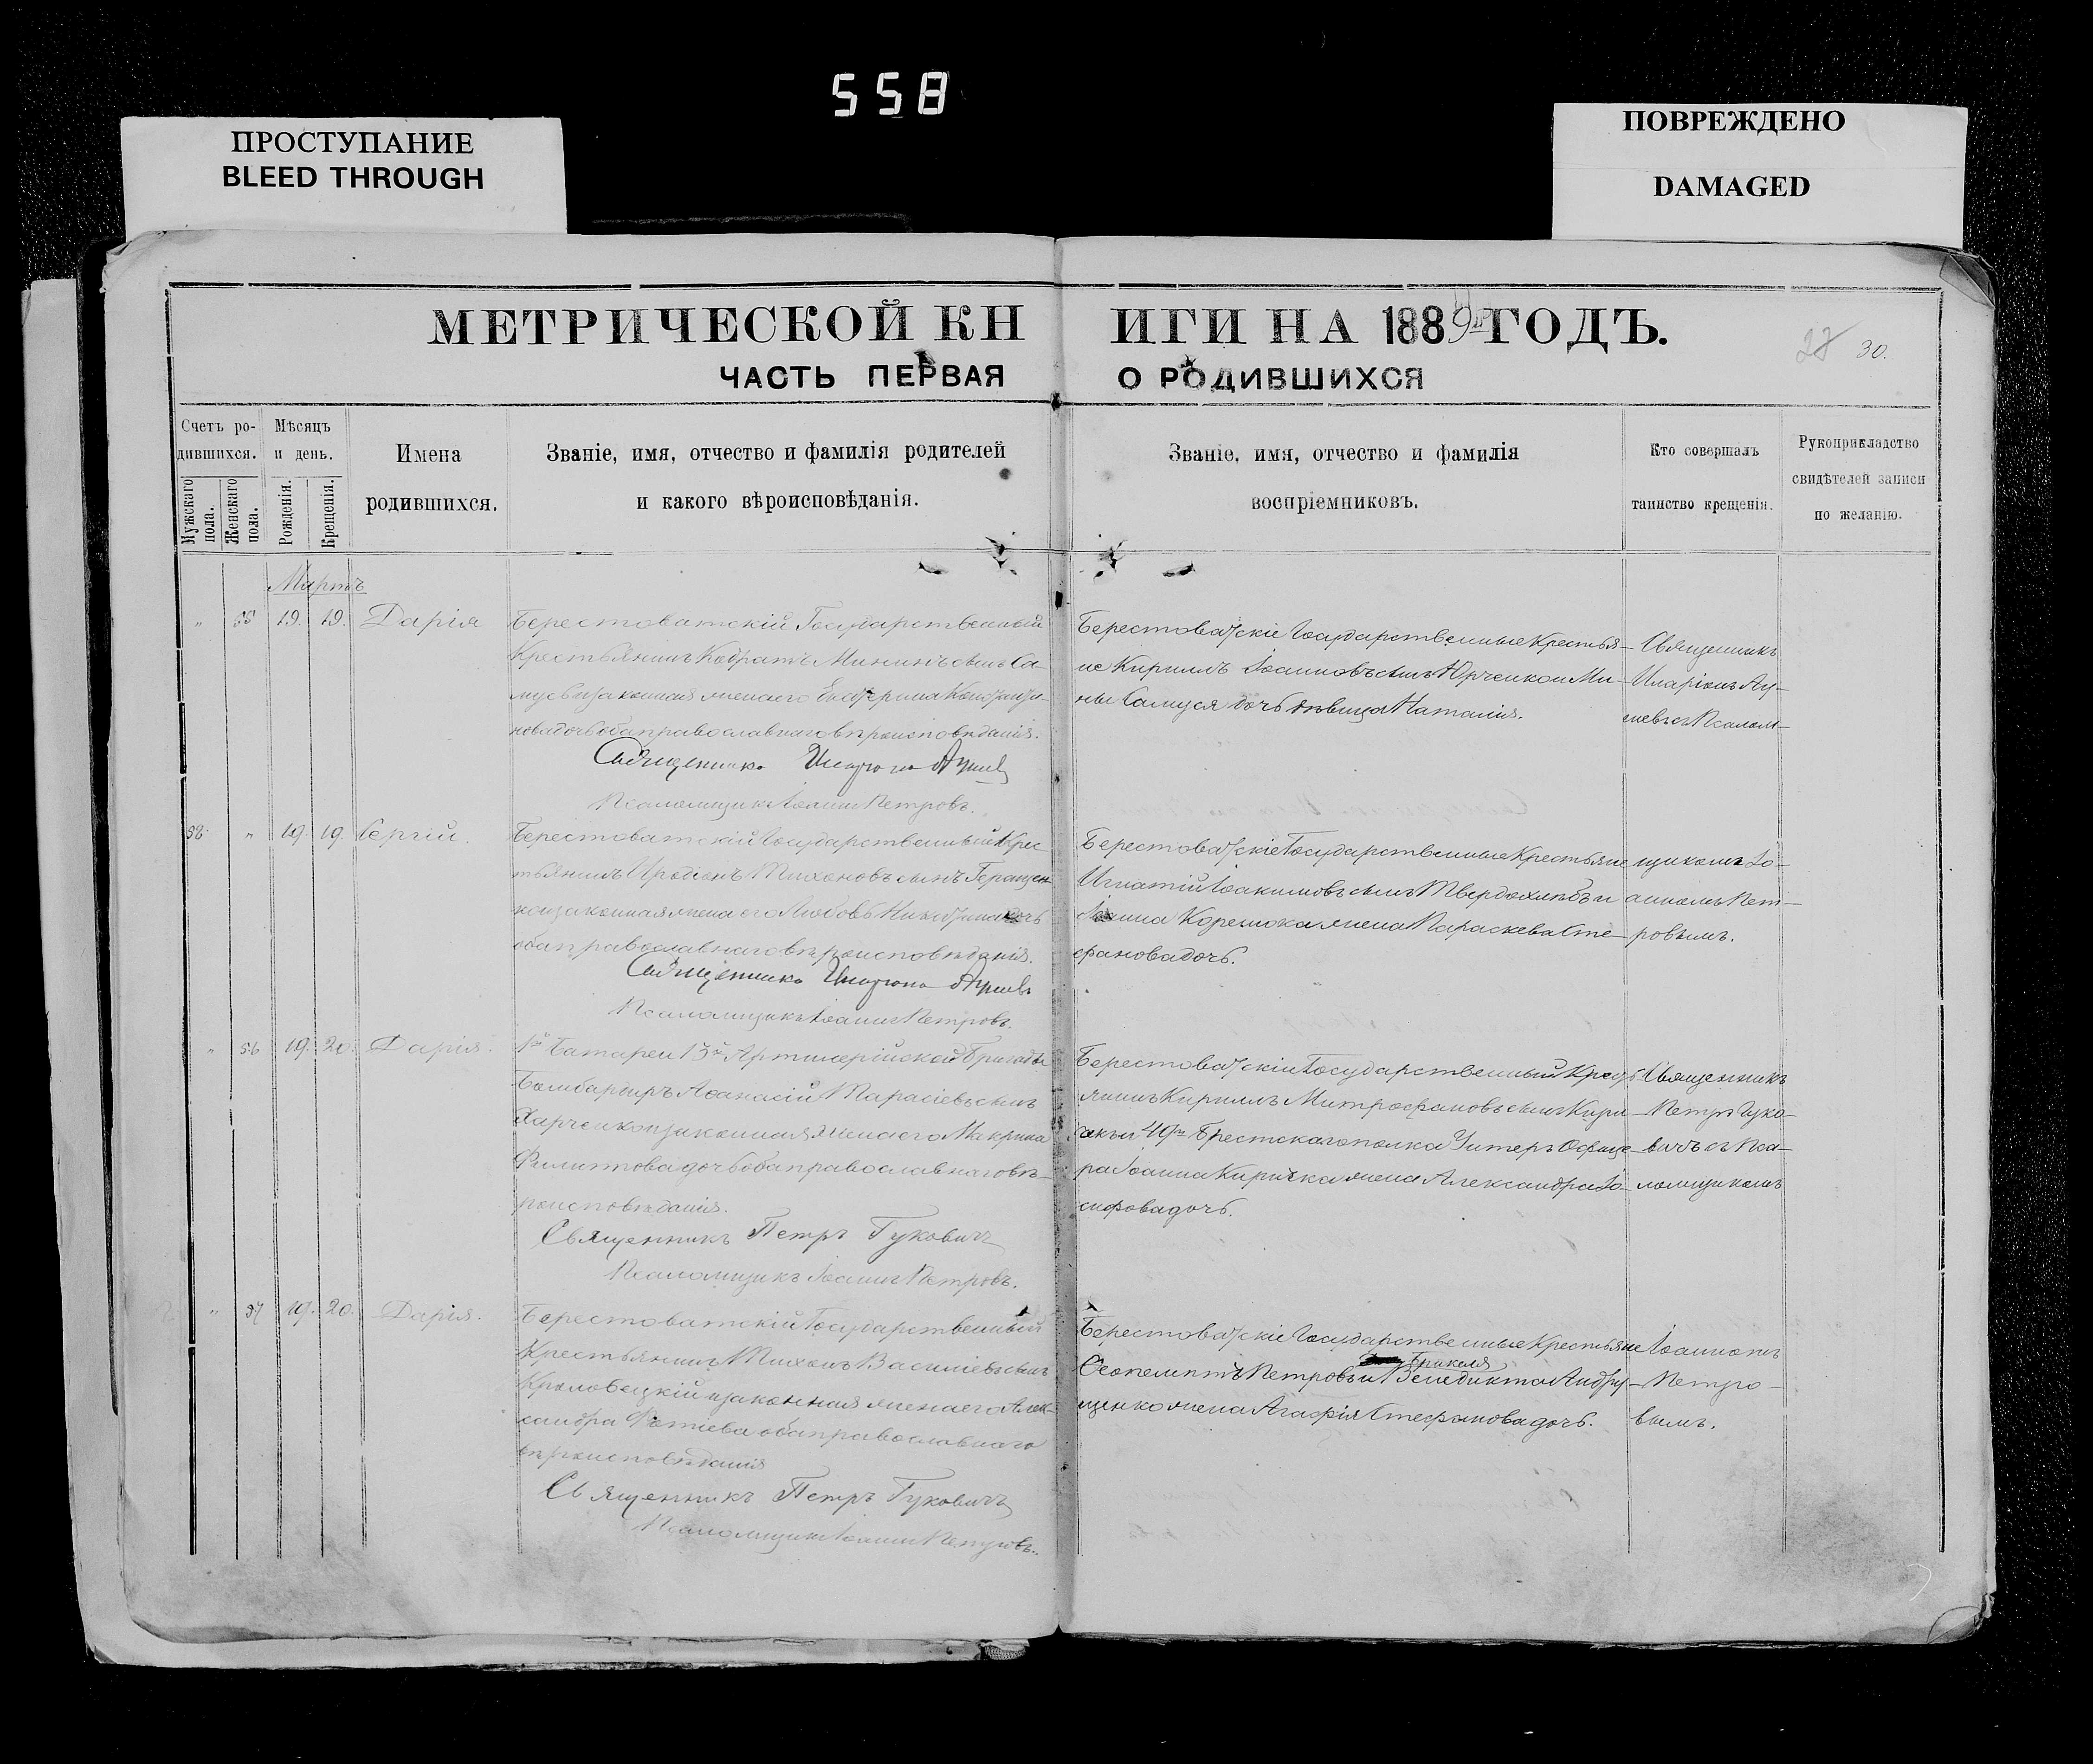 558
ПРОСТУПАНИЕ
BLEED THROUGH
ПОВРЕЖДЕНО
DAMAGED
МЕТРИЧЕСКОЙ КНИГИ НА 1889 ГОДЪ.
28 30.
ЧАСТЬ ПЕРВАЯ О РОДИВШИХСЯ
Счетъ ро-
дившихся.
Мужскаго пола.
Женскаго пола.
Мѣсяцъ
и день.
Рожденія.
Крещенія.
Имена
родившихся.
Званіе, имя, отчество и фамилія родителей
и какого вѣроисповѣданія.
Званіе, имя, отчество и фамилія
воспріемниковъ.
Кто совершалъ
таинство крещенія.
Рукоприкладство
свидѣтелей записи
по желанію.
Мартъ
" 55 19. 19. Дарія
Берестоватскій Государственный
Крестьянинъ Кодратъ Мининъ сынъ Са-
мусь и законная жена его Екатерина Константи-
нова дочь оба православнаго вѣроисповѣданія.
Священникъ
Псаломщикъ Іоаннъ Петровъ.
Берестоватскіе Государственные Крестья-
не Кириллъ Іоанновъ сынъ Юрченко и Ми-
ны Самуся дочь дѣвица Наталія.
Священникъ
Иларіонъ
съ Псалом-
58. " 19. 19. Сергій.
Берестоватскій Государственный Крес-
тьянинъ Иродіонъ Тихоновъ сынъ Геращен-
ко и законная жена его Любовь дочь
оба православнаго вѣроисповѣданія.
Священникъ
Псаломщикъ Іоаннъ Петровъ.
Берестоватскіе Государственные Крестьяне
Игнатій Іоакимовъ сынъ Твердохлѣбъ и
Іоанна жена Параскева Сте-
фанова дочь.
щикомъ Іо-
анномъ Пет-
ровымъ.
" 56 19. 20. Дарія.
1й Батареи 13й Артилерійской Бригады
Бомбардиръ Аѳанасій Тарасіевъ сынъ
Харченко и законная жена его Макрина
Филиппова дочь оба православнаго вѣ-
роисповѣданія.
Священникъ Петръ Гуковичъ
Псаломщикъ Іоаннъ Петровъ.
Берестоватскій Государственный Кресть-
янинъ Кириллъ Митрофановъ сынъ Кири-
чокъ и 49го Брестскаго полка Унтеръ Офице-
ра Іоанна Киричка жена Александра Іо-
сифова дочь.
Священникъ
Петръ Гуко-
вичъ съ Пса-
ломщикомъ
" 57 19. 20. Дарія.
Берестоватскій Государственный
Крестьянинъ Тихонъ Василіевъ сынъ
Кроловецкій и законная жена его Алек-
сандра Фотіева оба православнаго
вѣроисповѣданія
Священникъ Петръ Гуковичъ
Псаломщикъ Іоаннъ Петровъ.
Берестоватскіе Государственные Крестьяне
Ѳеопемптъ Петровъ и Венедикта Андру-
щенко жена Агафія Стефанова дочь.
Іоанномъ
Петро-
вымъ.